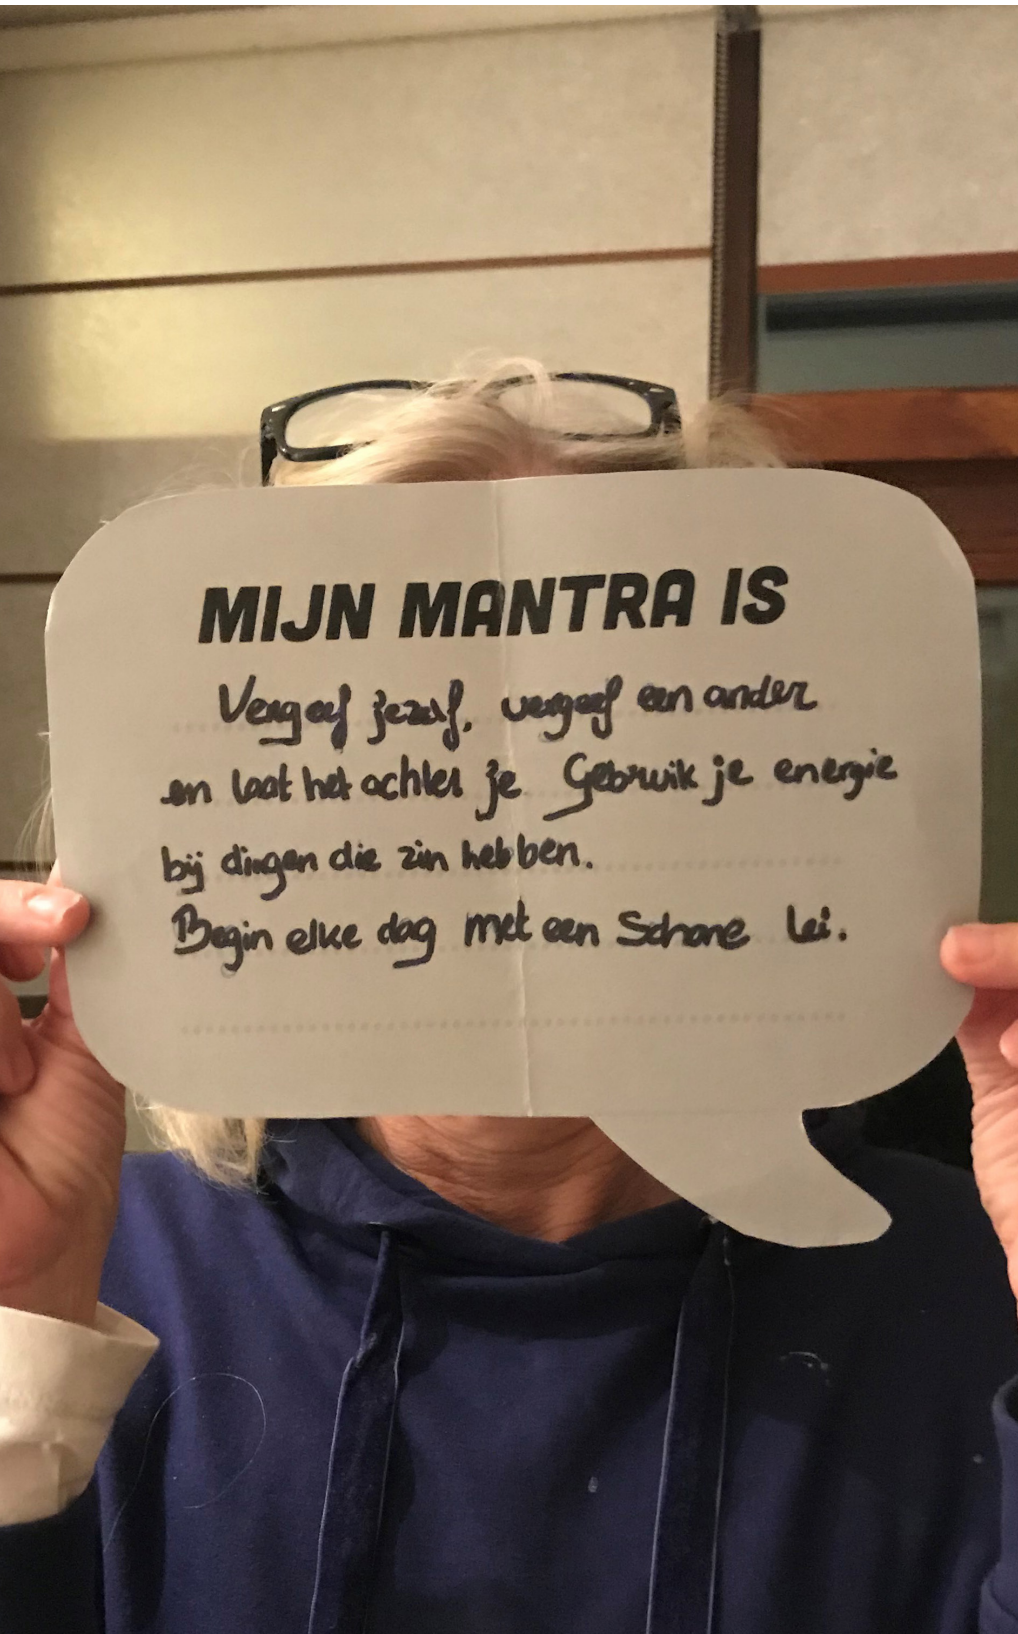 MIJN MANTRA IS
Vergeef jezelf, vergeef een ander
en laat het achter je Gebruik je energie
bij dingen die zin hebben.
Begin elke dag met een Schone lei.